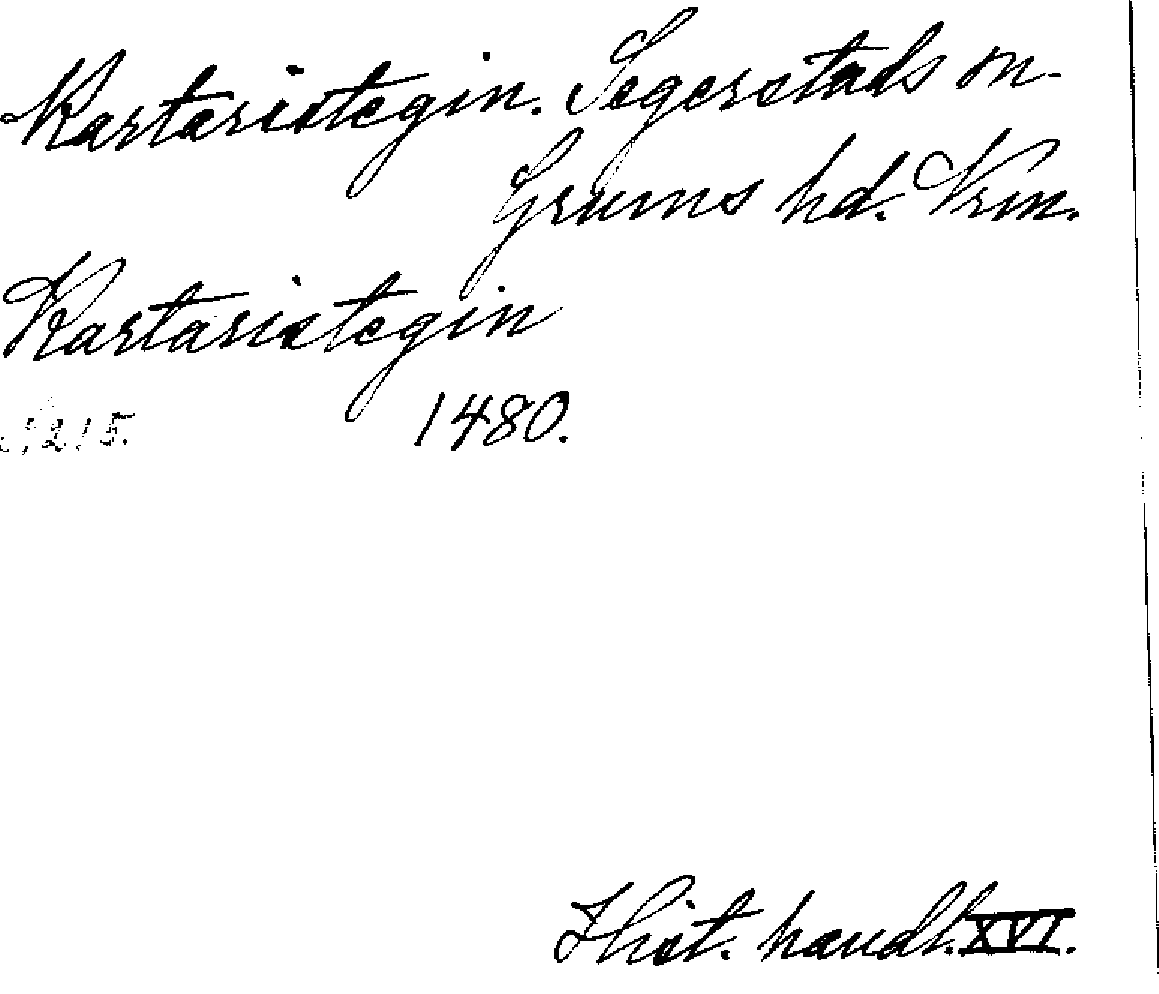 Kartæristegin. Segerstads sn.
Grums hd. Vrm.
Kartaristegin
s. 215. 1480.
Hist. handl. XVI.